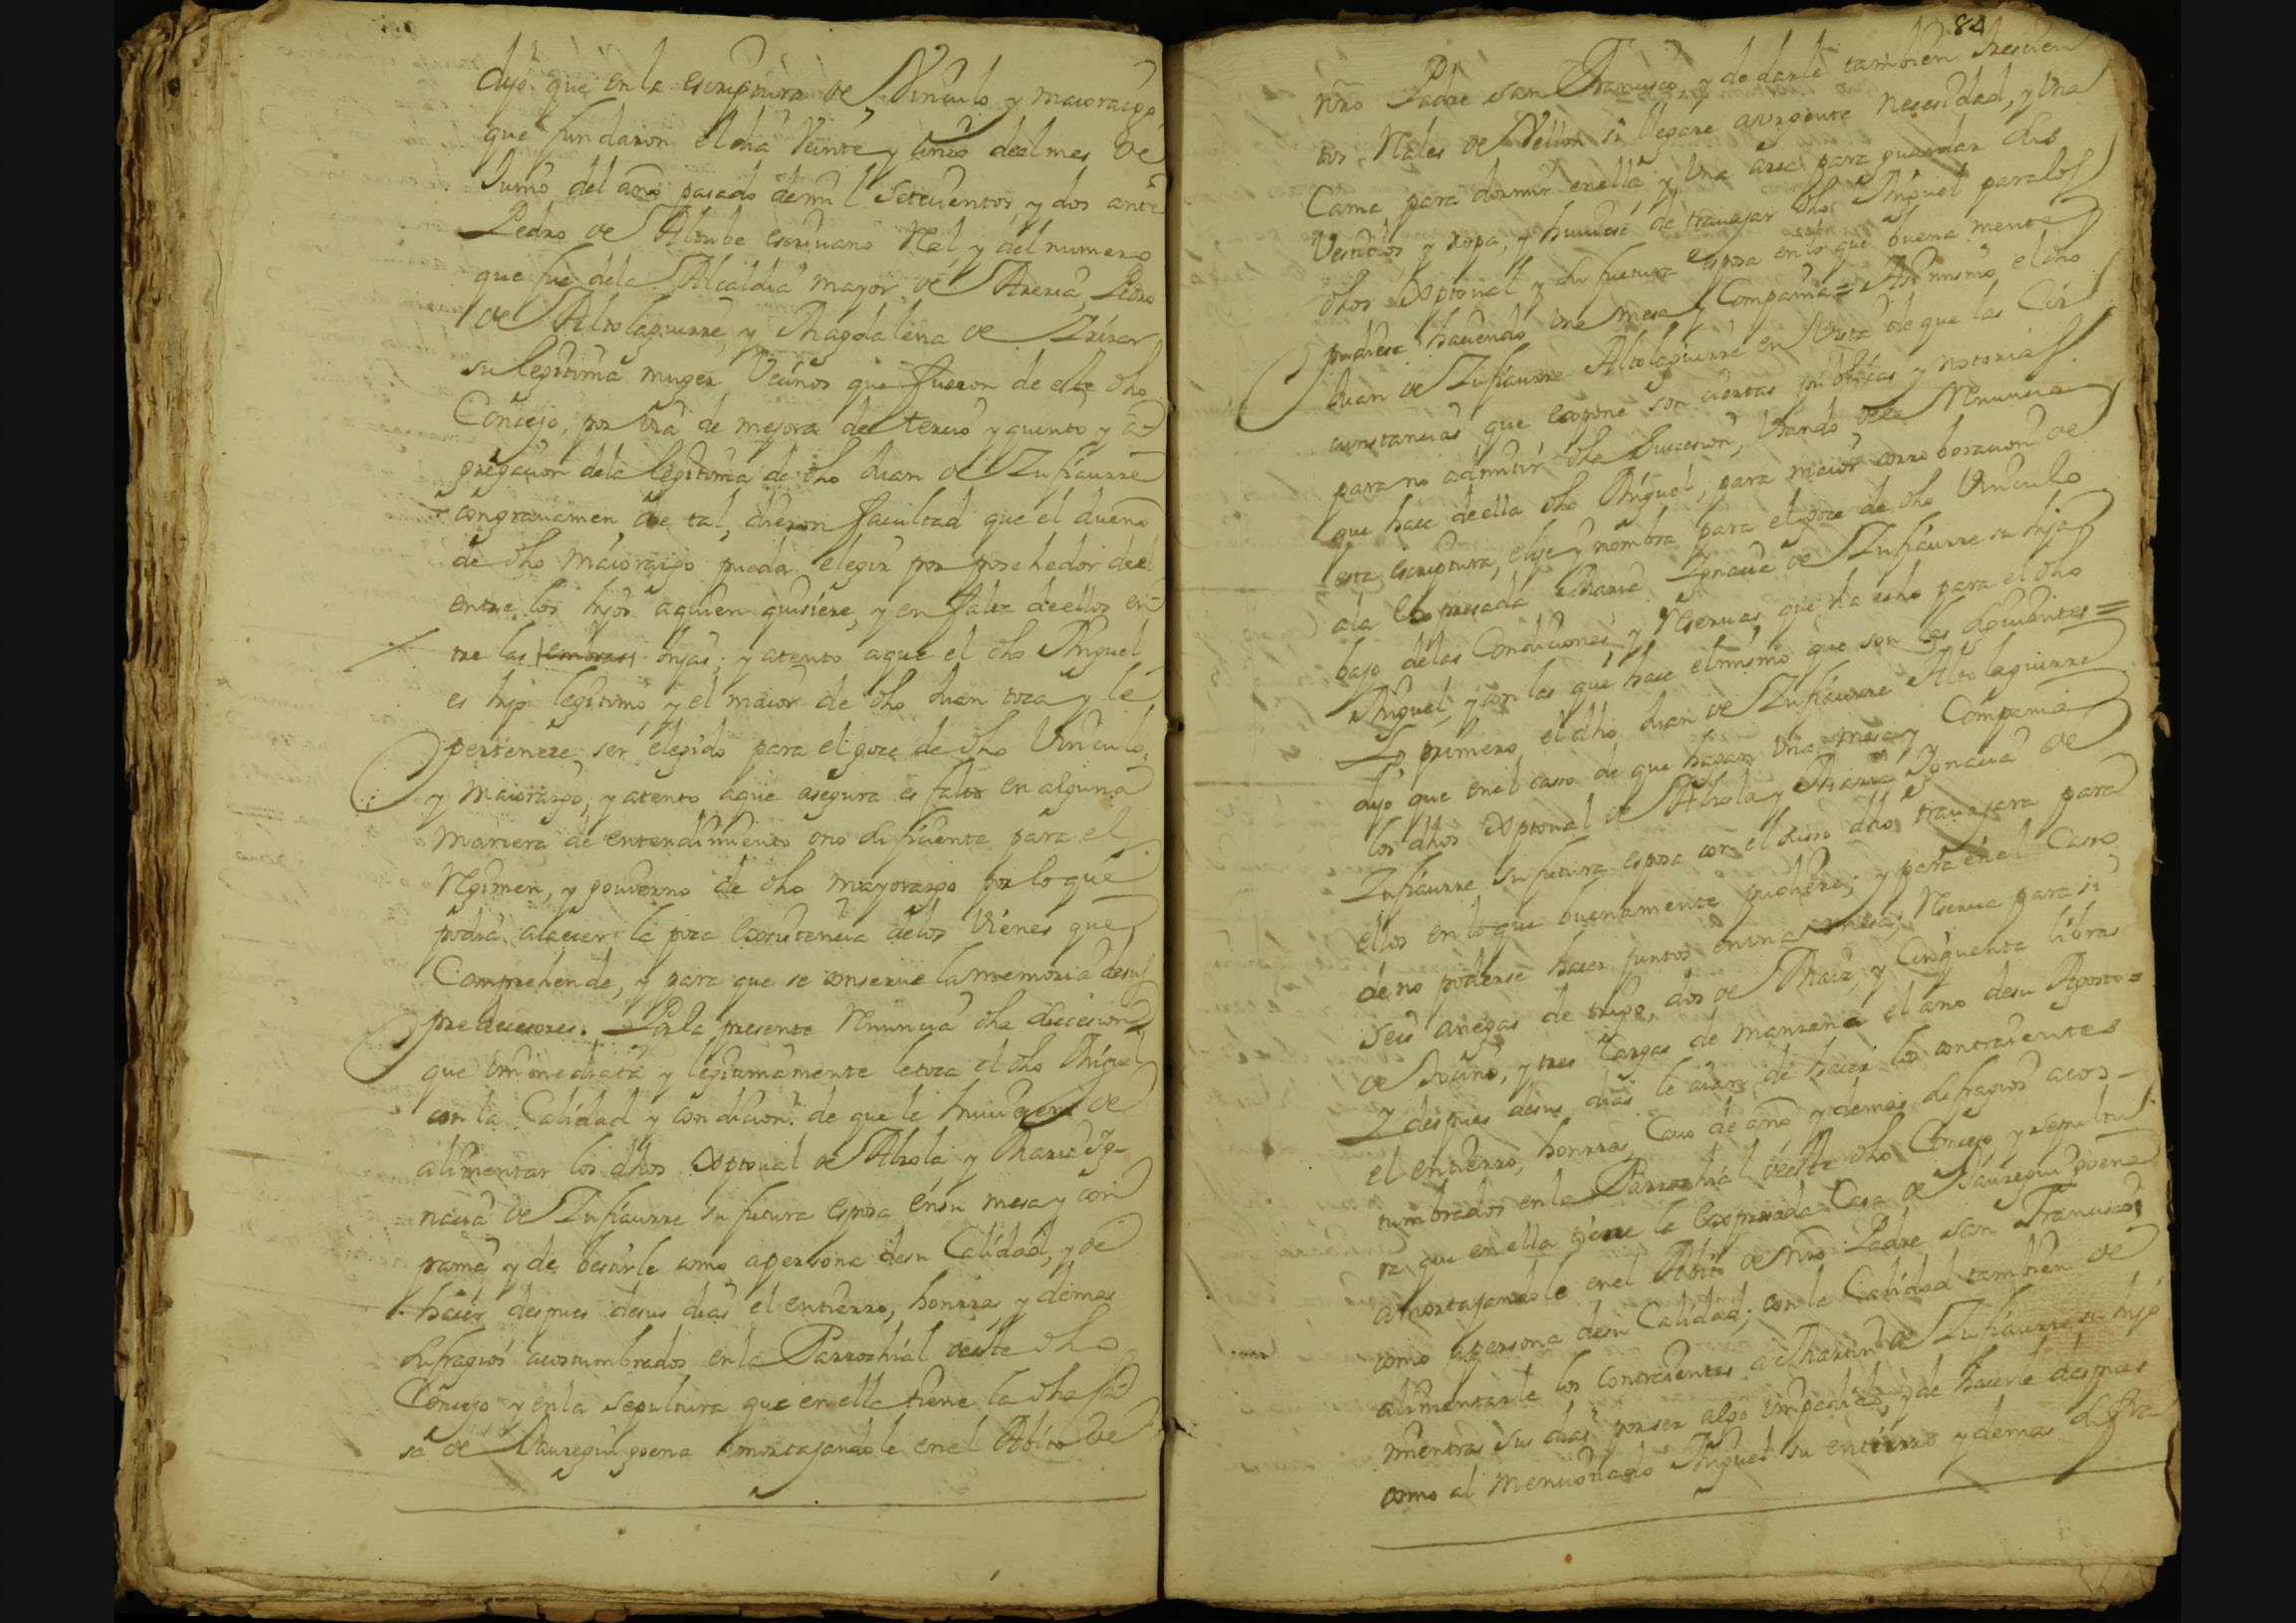 dijo que en la escriptura de Vinculo y maiorazgo
que fundaron el dia Veinte y cinco del mes de
Junio del año pasado de mil setecientos y dos ante
Pedro de Alzube escriuano Rl y del numero
que fue dela Alcaldia mayor de Areria Pedro
de Altolaguirre y Magdalena de Irizar
su legitima muger Vecinos que fueron de este dho
Concejo, por via de mejora de tercio y quinto y a-
gregacion dela legitima de dho Juan de Insaurre
con grauamen de tal, dieron facultad que el dueño
de dho maiorazgo pueda elegir por posehedor deel
entre los hijos aquien quisiere, y en falta deellos en-
tre las hembras hijas; y atento aque el dho Miguel
es hijo legitimo y el maior de dho Juan toca y le
pertenece ser elegido para el goce de dho Vinculo
y maiorazgo, y atento aque asegura es falto en alguna
manera de entendimiento ono suficiente para el
Regimen, y gouierno de dho mayorazgo por lo que
podra acaecer la poca existencia delos Vienes que
Comprehende, y para que se conserue la memoria desus
predecesores. Por la presente Renuncia dha succesion
que inmediata y legitimamente letoca el dho Miguel
con la Calidad y condicion de que le huuiesen de
alimentar los dhos Xptoual de Alzola y Maria Ig-
nacia de Insaurre su futura esposa en su mesa y com
pania y de bestirle como a persona desu Calidad, y de
hacer despues desus dias el entierro, honrras, y demas
sufragios acostumbrados en la Parrochial deeste dho
Concejo y en la sepultura que en ella tiene la dha ca-
sa de Jauregui goena amortajandole en el Abito de
84
nro Padre san Francisco, y de darle tambien trescien
tos Rales de Vellon si llegare a vrgente necesidad, y Una
Cama para dormir enella, y Una arca para guardar sus
Vestidos y ropa, y huuiese de trauajar dho Miguel paralos
dhos Xptoual y su futura esposa en lo que buena mente
pudiese haciendo una mesa y Compania = Asimismo el dho
Juan de Insaurre Altolaguirre en Vista de que las Cir
cunstancias que expone son ciertas publicas y notorias
para no admitir dha succesion, Usando dela Renuncia
que hace deella dho Miguel, para maior corroboracion de
esta escriptura, elije y nombra para el goce de dho Vinculo
ala expresada Maria Ignacia de Insaurre su hija
bajo delas Condiciones y Reseruas que ha echo para el dho
Miguel, y con las que hace el mismo que son las siguientes =
Lo primero el dho Juan de Insaurre Altolaguirre
dijo que en el casso de que hagan Una mesa y Compania
los dhos Xptoual de Alzola y Maria Ignacia de
Insaurre su futura esposa con el susso dho trauajara para
ellos en lo que buenamente pudiere; y para en el Casso
de no poderse hacer juntos en una mesa; Reserua para si
seis anegas de trigo, dos de Maiz, y Cinquenta libras
de tocino, y tres Cargas de manzana el año desu Agosto =
Y despues desus dias le aian de hacer los contraientes
el entierro, honrras, Cauo de año y demas sufragios acos-
tumbrados en la Parrochial deeste dho Concejo y sepultu
ra que en ella tiene la expresada Casa de Jauregui goena
amortajandole en el Abito de Nro Padre san Francisco
como a persona desu Calidad; con la Calidad tambien de
alimentarle los Contraientes a Martin de Insaurre su hijo
mientras sus dias por ser algo impedido, y de hacerle despues
como al mencionado Miguel su entierro y demas sufra